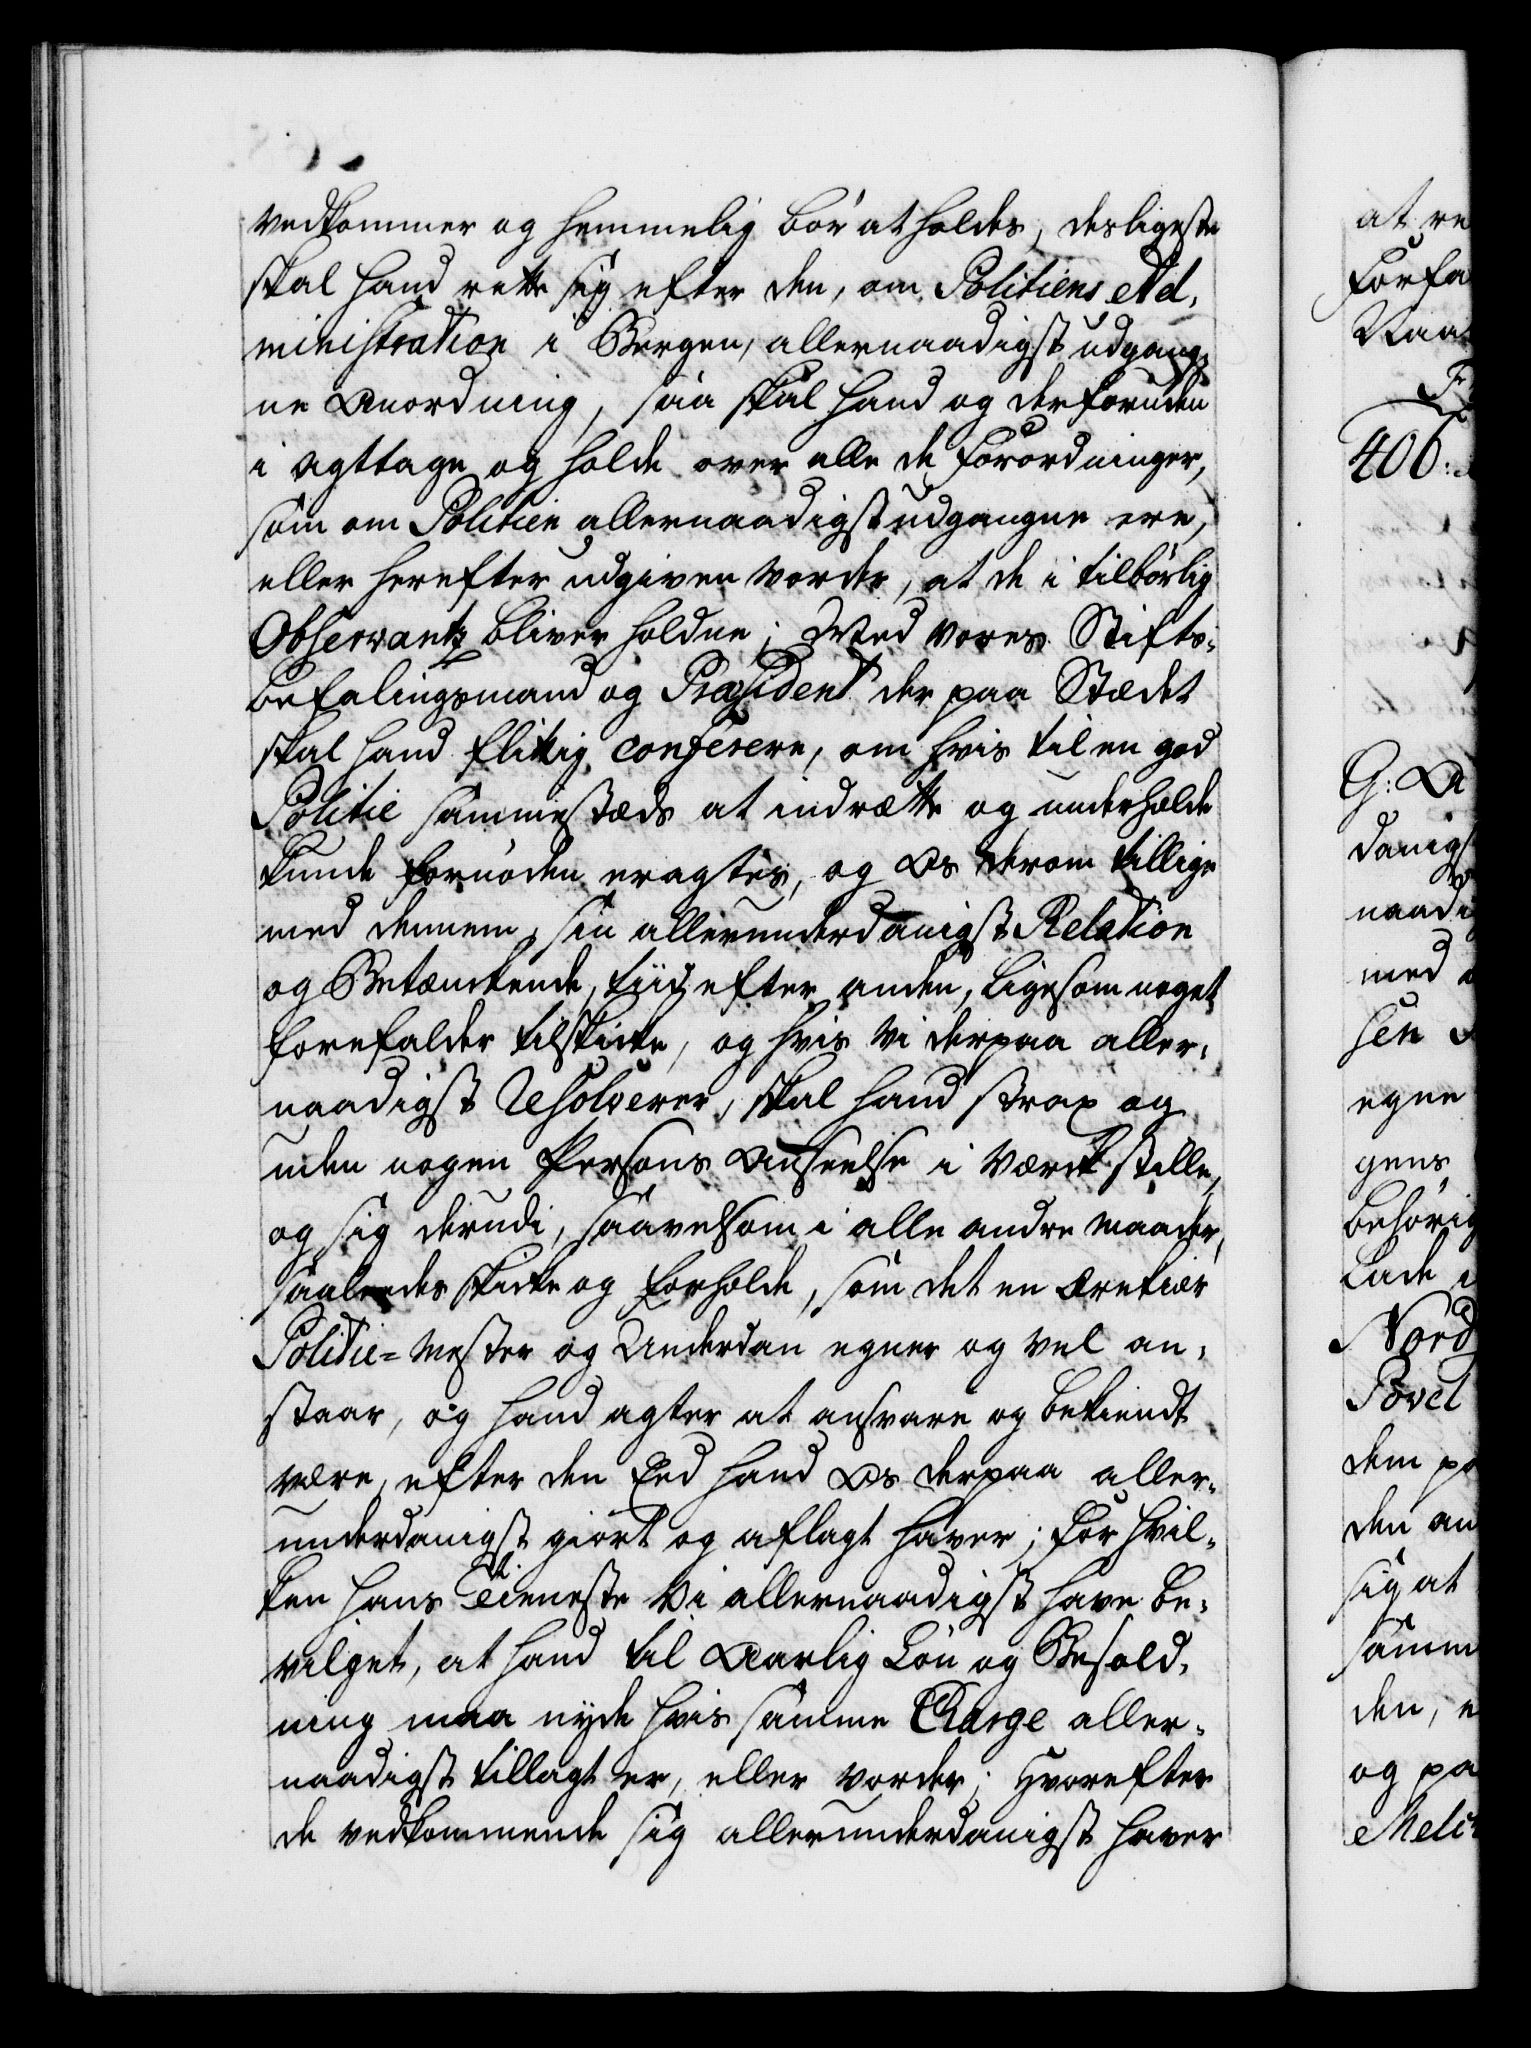 vedkommer og hemmelig bør at holdes, desligeste
skal hand rette sig efter den, om Politiens Ad,
ministration i Bergen, allernaadigst udgang-
ne Anordning, saa skal hand og derforuden
i agttage og holde over alle de Forordninger,
som om Politien allernaadigst udgangne ere,
eller herefter udgiven vorder, at de i tilbørlig
Observantz bliver holdne; Med vores Stifts-
befalingsmand og Præsident der paa Stædet
skal hand flitig conferere, om hvis til en god
Politie sammestæds at indrætte og underholde
kunde fornøden eragtes, og Os derom tillige
med dennem, sin allerunderdanigst Relation
og Betænckende, tiid efter anden, ligesom noget
forefalder tilskicke, og hvis Vi derpaa aller,
naadigst Resolverer, skal hand strax og
uden nogen Persons Anseelse i Værck stille,
og sig derudi, saavelsom i alle andre maader,
saaleedes skicke og forholde, som det en ærekiær
Politie-Mester og Underdan egner og vel an,
staar, og hand agter at ansvare og bekiendt
være, efter den Eed hand Os derpaa aller,
underdanigst giort og aflagt haver; For hvil,
ken hans Tieneste Vi allernaadigst have be,
vilget, at hand til Aarlig Løn og Besold,
ning maa nyde hvis samme Charge aller,
naadigst tillagt er, eller vorder; Hvorefter
de vedkommende sig allerunderdanigst haver
at re
Forfa
Raa
406:
G: A
danigs
naadi
med
sen
egne
gens
behørig
Lade i
Nord
Povel
dem pa
den an
sig at
samm
den, e
og pa
Melch